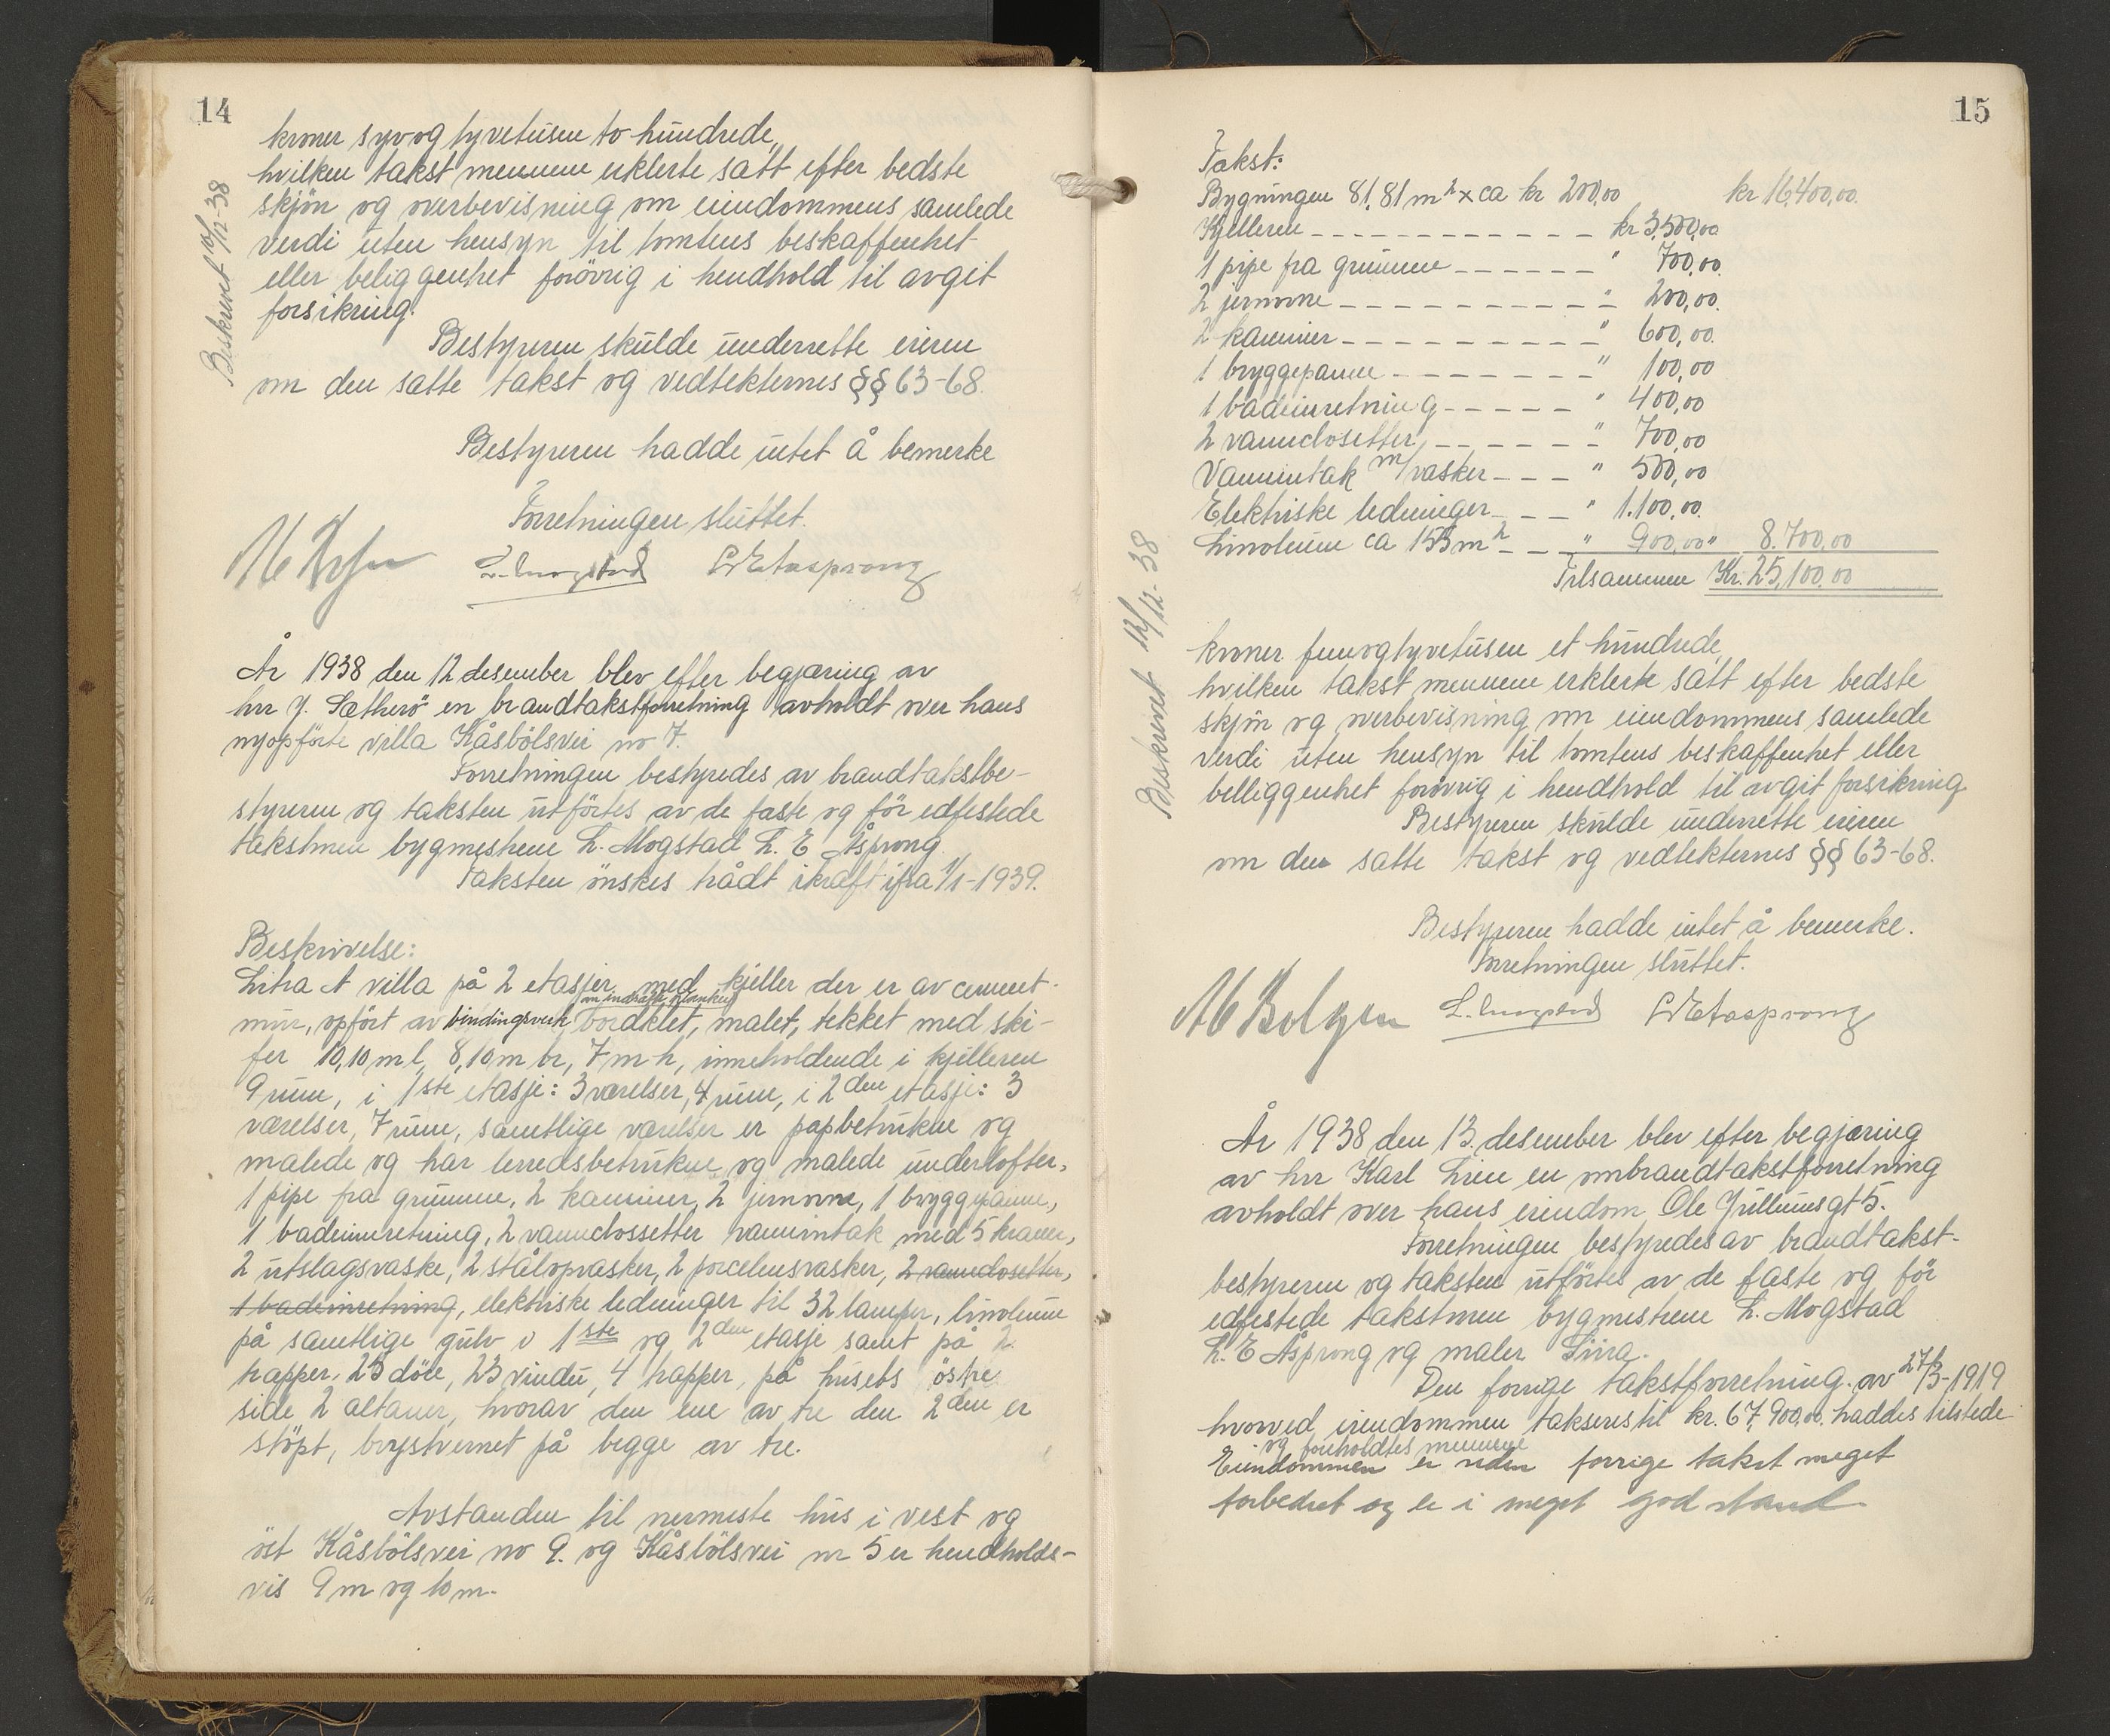 14
kroner syvogtyvetusen to hundrede,
hvilken takst mennene erklerte satt efter bedste
skjön og overbevisning om eiendommens samlede
verdi uten hensyn til tomtens beskaffenhet
eller beliggenhet forövrig i hendhold til avgit
forsikring.
Beskrevet 10/12-38
Bestyreren skulde underrette eieren
om den satte takst og vedtekternes §§ 63-68.
Bestyreren hadde intet å bemerke
Forretningen sluttet.
L. Mogstad L E Aasprong
År 1938 den 12 desember blev efter begjæring av
hrr J. Sætherö en brandtakstforretning avholdt over hans
nyopförte villa Kåsbölsvei no 7.
Forretningen bestyredes av brandtakstbe-
styreren og taksten utförtes av de faste og för edfestede
takstmen bygmestrene L. Mogstad L. E Åsprong.
Taksten önskes trådt ikraft ifra 1/1-1939.
Beskrivelse:
Litra A villa på 2 etasjer med kjeller der er av cement-
mur, opfört av bindingsverk bordklet, malet, tekket med ski-
fer 10,10 m l, 8,10 m br, 7 m h, inneholdende i kjelleren
9 rum, i 1ste etasje: 3 værelser, 4 rum, i 2den etasje: 3
værelser, 7 rum, samtlige værelser er papbetrukne og
malede og har lerredsbetrukne og malede underlofter,
1 pipe fra grunnen, 2 kaminer, 2 jernovne, 1 bryggepanne,
1 badeinnretning, 2 vannclossetter vanninntak med 5 kraner,
2 utslagsvaske, 2 stålopvasker, 2 porcelensvasker, 2 vannclosetter,
1 badeinretning, elektriske ledninger til 32 lamper, linoleum
på samtlige gulv i 1ste og 2den etasje samt på 2
trapper, 25 döre, 23 vindu, 4 trapper, på husets östre
side 2 altaner, hvorav den ene av tre den 2den er
stöpt, brystvernet på begge av tre.
Avstanden til nermeste hus i vest og
öst Kåsbölsvei no 9. og Kåsbölsvei nr 5 er hendholds-
vis 9 m og 10 m.
15
Takst:
Bygningen 81,81 m2 x ca kr 200,00 kr 16,400,00.
Kjelleren kr 3,500,00
1 pipe fra grunnen " 700,00.
2 jernovne " 200,00.
2 kaminer " 600,00.
1 bryggepanne " 100,00
1 badeinretning " 400,00
2 vannclosetter " 700,00
Vanninntak m/vasker " 500,00
Elektriske ledninger " 1.100,00.
Linoleum ca 153 m2 " 900,00 " 8.700,00
Tilsammen Kr. 25,100,00
kroner femogtyvetusen et hundrede,
hvilken takst mennene erklerte satt efter bedste
skjön og overbevisning om eiendommens samlede
verdi uten hensyn til tomtens beskaffenhet eller
belliggenhet forövrig i hendhold til avgit forsikring
Beskrevet 12/12-38
Bestyreren skulde underrette eieren
om den satte takst og vedtekternes §§ 63-68.
Bestyreren hadde intet å bemerke.
Forretningen sluttet.
L. Mogstad L E Aasprong
År 1938 den 13. desember blev efter begjæring
av hrr Karl Lien en ombrandtakstforretning
avholdt over hans eiendom Ole Jullumsgt 5.
Forretningen bestyredes av brandtakst-
bestyreren og taksten utförtes av de faste og för
edfestede takstmen bygmestrene L. Mogstad
L. E Åsprong og maler
Den forrige takstforretning av 27/3-1919
hvorved eiendommen takseres til kr. 67,900,00. haddes tilstede
og foreholdtes mennene
Eiendommen er siden forrige takst meget
forbedret og er i meget god stand